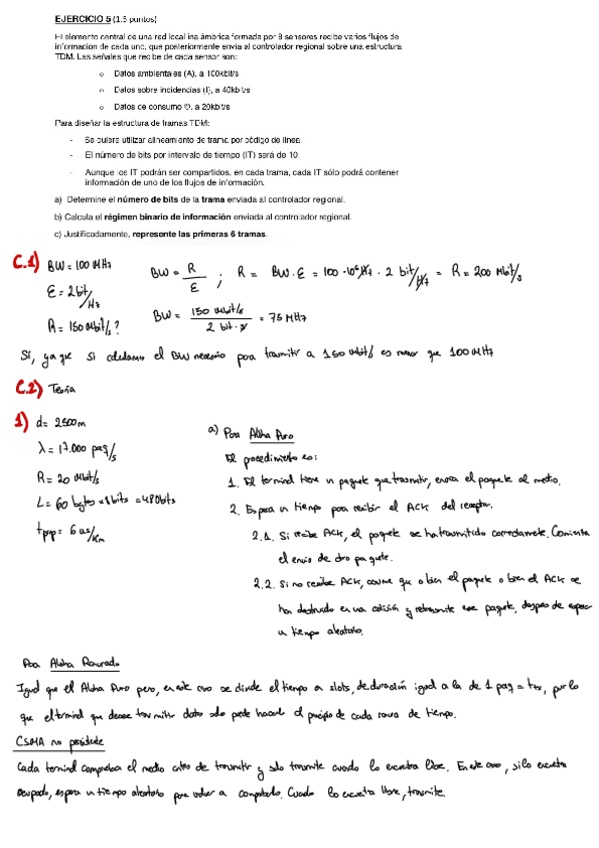 EJERCICIO 5 (1.5 puntos)
El elemento central de una red local inalámbrica formada por 8 sensores recibe varios flujos de
información de cada uno, que posteriormente envía al controlador regional sobre una estructura
TDM. Las señales que recibe de cada sensor son:
o Datos ambientales (A), a 100kbit/s
o Datos sobre incidencias (I), a 40kbit/s
o Datos de consumo, a 20kbit/s
Para diseñar la estructura de tramas TDM:
- Se quiere utilizar alineamiento de trama por código de línea.
- El número de bits por intervalo de tiempo (IT) será de 10.
- Aunque los IT podrán ser compartidos, en cada trama, cada IT sólo podrá contener
información de uno de los flujos de información.
a) Determine el número de bits de la trama enviada al controlador regional.
b) Calcula el régimen binario de información enviada al controlador regional.
c) Justificadamente, represente las primeras 6 tramas.
C.1) BW = 100 MHz
BW = R / E ; R = BW · E = 100 · 10⁶ Hz · 2 bit/Hz = R = 200 Mbit/s
E = 2 bit/Hz
R = 150 Mbit/s ?
BW = 150 Mbit/s / 2 bit · s = 75 MHz
Sí, ya que si el BW necesario para transmitir a 150 Mbit/s es menor que 100 MHz
C.2) Teoría
1) d = 2500 m
λ = 17.000 paq/s
R = 20 Mbit/s
L = 60 bytes x 8 bits = 480 bits
tprp = 6 us/Km
a) Para Aloha Puro
El procedimiento es:
1. El terminal tiene un paquete que trasmitir, envía el paquete al medio.
2. Espera un tiempo para recibir el ACK del receptor.
2.1. Si recibe ACK, el paquete se ha trasmitido correctamente. Comienza
el envío de otro paquete.
2.2. Si no recibe ACK, asume que o bien el paquete o bien el ACK se
han destruido en una colisión y retransmite ese paquete, después de esperar
un tiempo aleatorio.
Para Aloha Ranurado
Igual que el Aloha Puro pero, en este caso se divide el tiempo en slots, de duración igual a la de 1 paq = ttx, por lo
que el terminal que desee transmitir datos solo puede hacerlo al principio de cada ranura de tiempo.
CSMA no persistente
Cada terminal comprueba el medio antes de transmitir y solo transmite cuando lo encuentra libre. En este caso, si lo encuentra
ocupado, espera un tiempo aleatorio para volver a comprobarlo. Cuando lo encuentra libre, transmite.